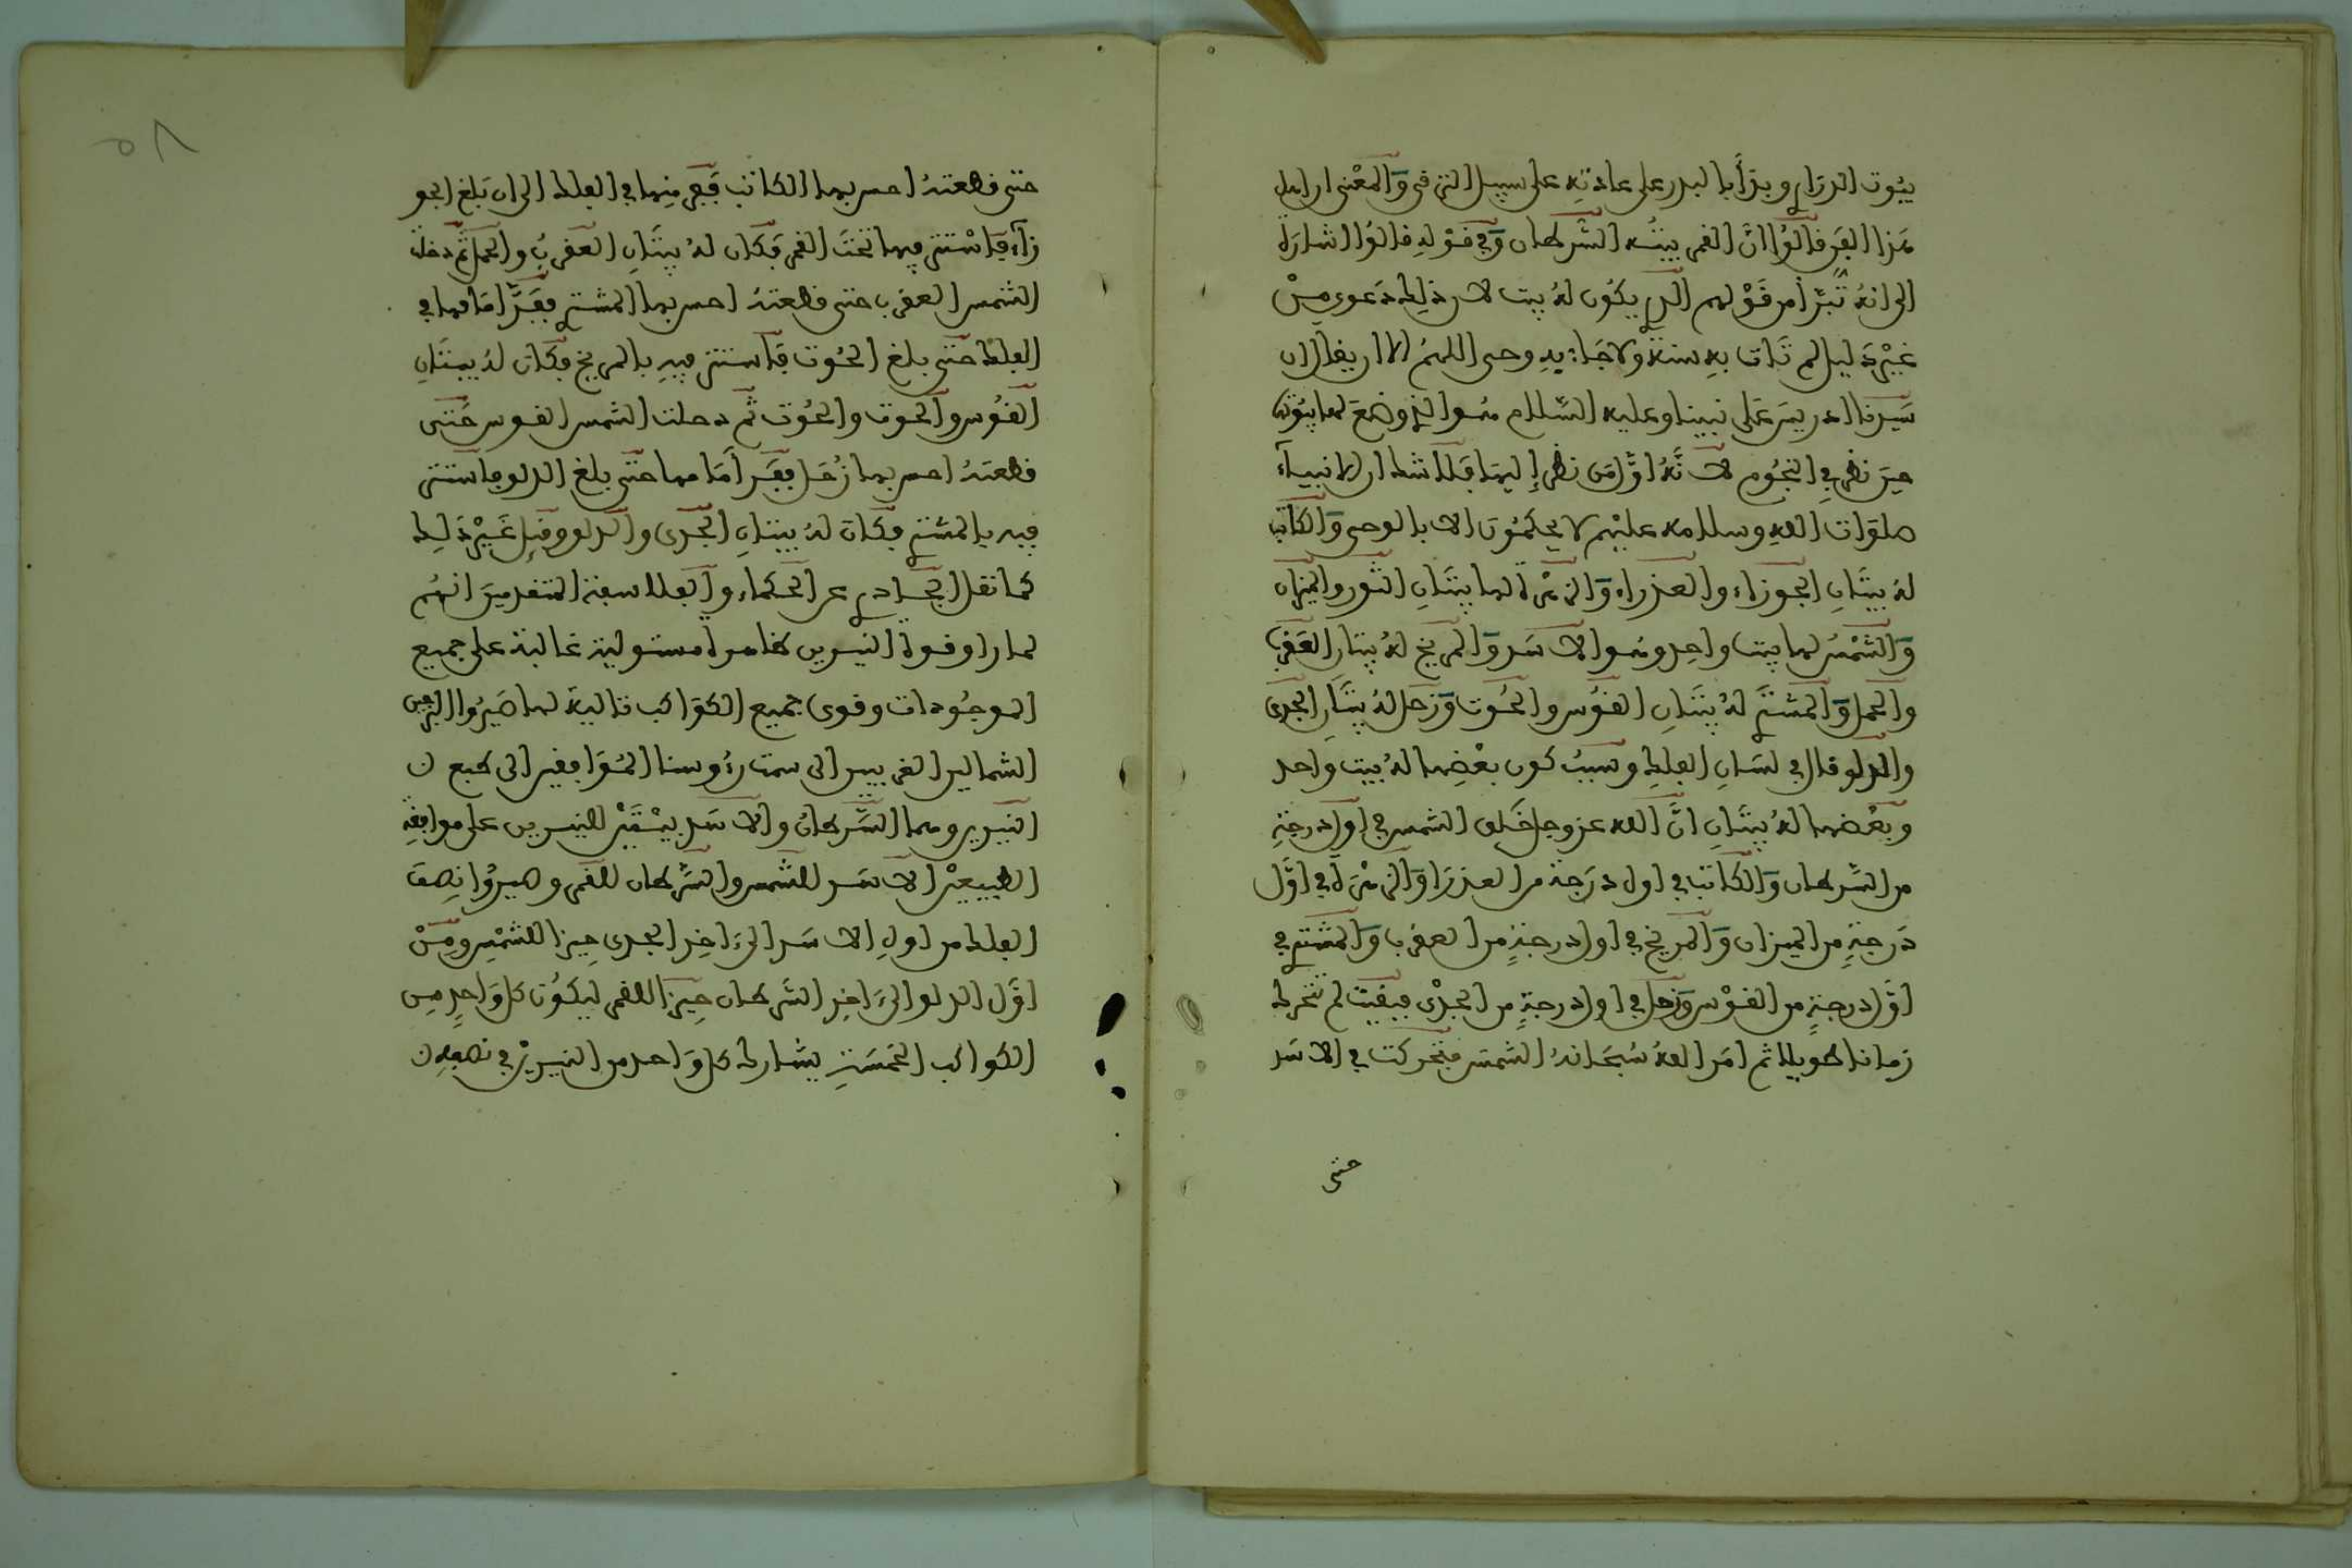 بيُوت الدرَارِي وبدَأ بالبدر على عادتِهِ على سبيل الترقى وَالمعْنى ان اهل
هَذا الفَن قالوُا انَّ القمر بيتُـه السَّرطان وَفي قوْلِهِ قالوُا اشارَة
الى انهُ تَبَرَّأ من قَوْلهم الذي يكوُن لهُ بيت لان ذلِك دَعوى مِنْ
غيْر دَليل لم تَات بِهِ سنة ولا جَاء بِهِ وحى اللهمُ الا ان يقال ان
سَيدنا ادريسَ عَلى نبينا وعليه السَّلام هُـو الذي وضعَ لها بيُوتا
حينَ نظر في النجُوم لانَّهُ اوَّل مَن نظر إليهَا فلا شك ان الانبيـآء
صلوَات اللهِ وسلامه عليْهم لا يحكمُونَ الا بالوحى وَالكاتب
لهُ بيتَانِ الجوزاء والعذراء وَالزهْرَة لها بيتَانِ الثور والميزان
وَالشَّمْسُ لها بيت واحِد وهُـو الاسَد وَالمريخ لهُ بيتَان العَقرب
والحمل وَالمشتري لهُ بيتَـانِ القوُس والحُوت وَزحل لهُ بيتَانِ الجدى
والدلو قال في لسَـانِ الفلكِ وسَببُ كون بعْضِها لهُ بيت واحد
وبعْضها لهُ بيتَـانِ انَّ الله عز وجل خَلق الشمس في اول درجةِ
من السَّرطان وَالكاتب في اول دَرَجة من العذرَا وَالزهْرَة في اوَّل
دَرجةٍ من الميزان وَالمريخ في اول درجةٍ من العقرب وَالمشتري في
اوَّل درجةٍ من القوْس وَزحل في اول درجةٍ من الجدْى فبقيَت لم تتحرك
زمانا طويلا ثم امَر اللهُ سُبحَانهُ الشمسَ فتحركت في الاسَد
حتى
حتى قطعتهُ احد بها الكاتب فَفر منها في الفلك الى ان بَلغ الجو
زآء فَاسْتتر فيها تحْتَ القمر فكان لهُ بيتَانِ العقربُ والحمل ثم دخلت
الشمس العقرب حتى قطعتهُ احد بها المشتري فَفَرَّ امَامها في
الفلك حتى بلغ الحُوت فَاستتر فيهِ بالمريخ فكان لهُ بيتَانِ
القوُس والحوت والحُوت ثم دخلت الشمس القوس حَتى
قطعَتهُ احد بها زُحَل ففَر أمَامها حتى بلغ الدلو فاستتر
فيه بالمشتري فكان لهُ بيتانِ الجَدى والدلو وقيل غَيْر ذَلِك
كما نقل الجادري عن الحكماء والفلاسفة المتقدمينَ انهُم
لما راوا قوة النيـرين ظاهرة مستولية غالبة على جميع
الموجُودات وقوى جميع الكوَاكب تالية لها صَيرُوا البرجين
الشماليين القريبين الى سمت رءُوسنا المُوَافقين الى طبع
النيرين وهما السَّرطانُ والاسَد بيْتَيْن للنيـرين على موافقة
الطبيعيْن الاسَـد للشمس والسَّرطان للقمر وصيرُوا نِصفَ
الفلك من اولِ الاسَـد الىَ ءاخِرِ الجدى حِيزا للشمْسِ ومِنْ
اوَّل الدلو الىَ ءاخِرِ السَّرطان حِيزا للقمر ليكوُن كل وَاحِدٍ مِن
الكواكب الخمسَةِ يشارك كل وَاحد من النيـريْن في نصفِه